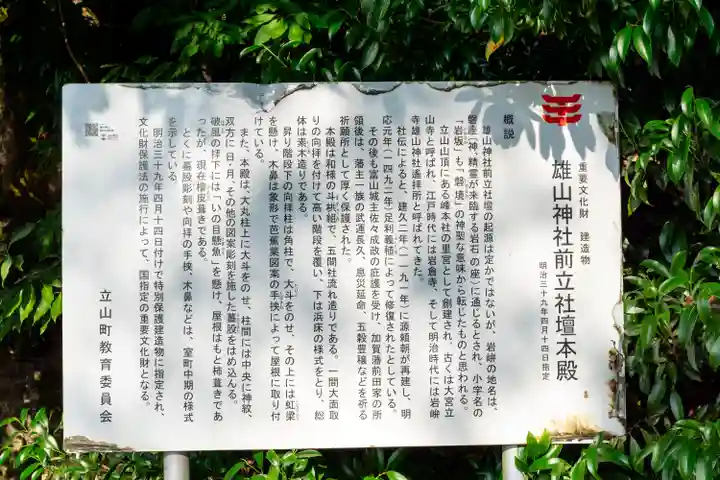 重要文化財 建造物
雄山神社前立社壇本殿
明治三十九年四月十四日指定
概説
雄山神社前立社壇の起源は定かではないが、岩峅の地名は、
磐座(神、精霊が来臨する岩石の座)に通じるとされ、小字名の
「岩坂」も「磐境」の神聖な意味から転じたものと思われる。
立山山頂にある峰本社の里宮として創建され、古くは大宮立
山寺と呼ばれ、江戸時代には岩倉寺、そして明治時代には岩峅
寺雄山神社遙拝所と呼ばれてきた。
社伝によると、建久二年(一一九二年)に源頼朝が再建し、明
応元年(一四九二年)足利義稙によって修復されたとしている。
その後も富山城主佐々成政の庇護を受け、加賀藩前田家の所
領後は、藩主一族の武運長久、息災延命、五穀豊穣などを祈る
祈願所として厚く保護された。
本殿は和様の斗栱組で、五間社流れ造りである。一間大面取
りの向拝を付けて高い階段を覆い、下は浜床の様式をとり、総
体は素木造りである。
昇り階段下の向拝柱は角柱で、大斗をのせ、その上には虹梁
を懸け、木鼻は象形で芭蕉葉図案の手挟によって屋根に取り付
けている。
また、本殿は、大丸柱上に大斗をのせ、柱間には中央に神紋、
双方に日・月・その他の図案彫刻を施した蟇股をはめ込んる。
破風の拝下には「いの目懸魚」を懸け、屋根はもと杮葺きであ
ったが、現在檜皮葺きである。
とくに蟇股彫刻や向拝の手挟、木鼻などは、室町中期の様式
を示している。
明治三十九年四月十四日付けで特別保護建造物に指定され、
文化財保護法の施行によって、国指定の重要文化財となる。
立山町教育委員会